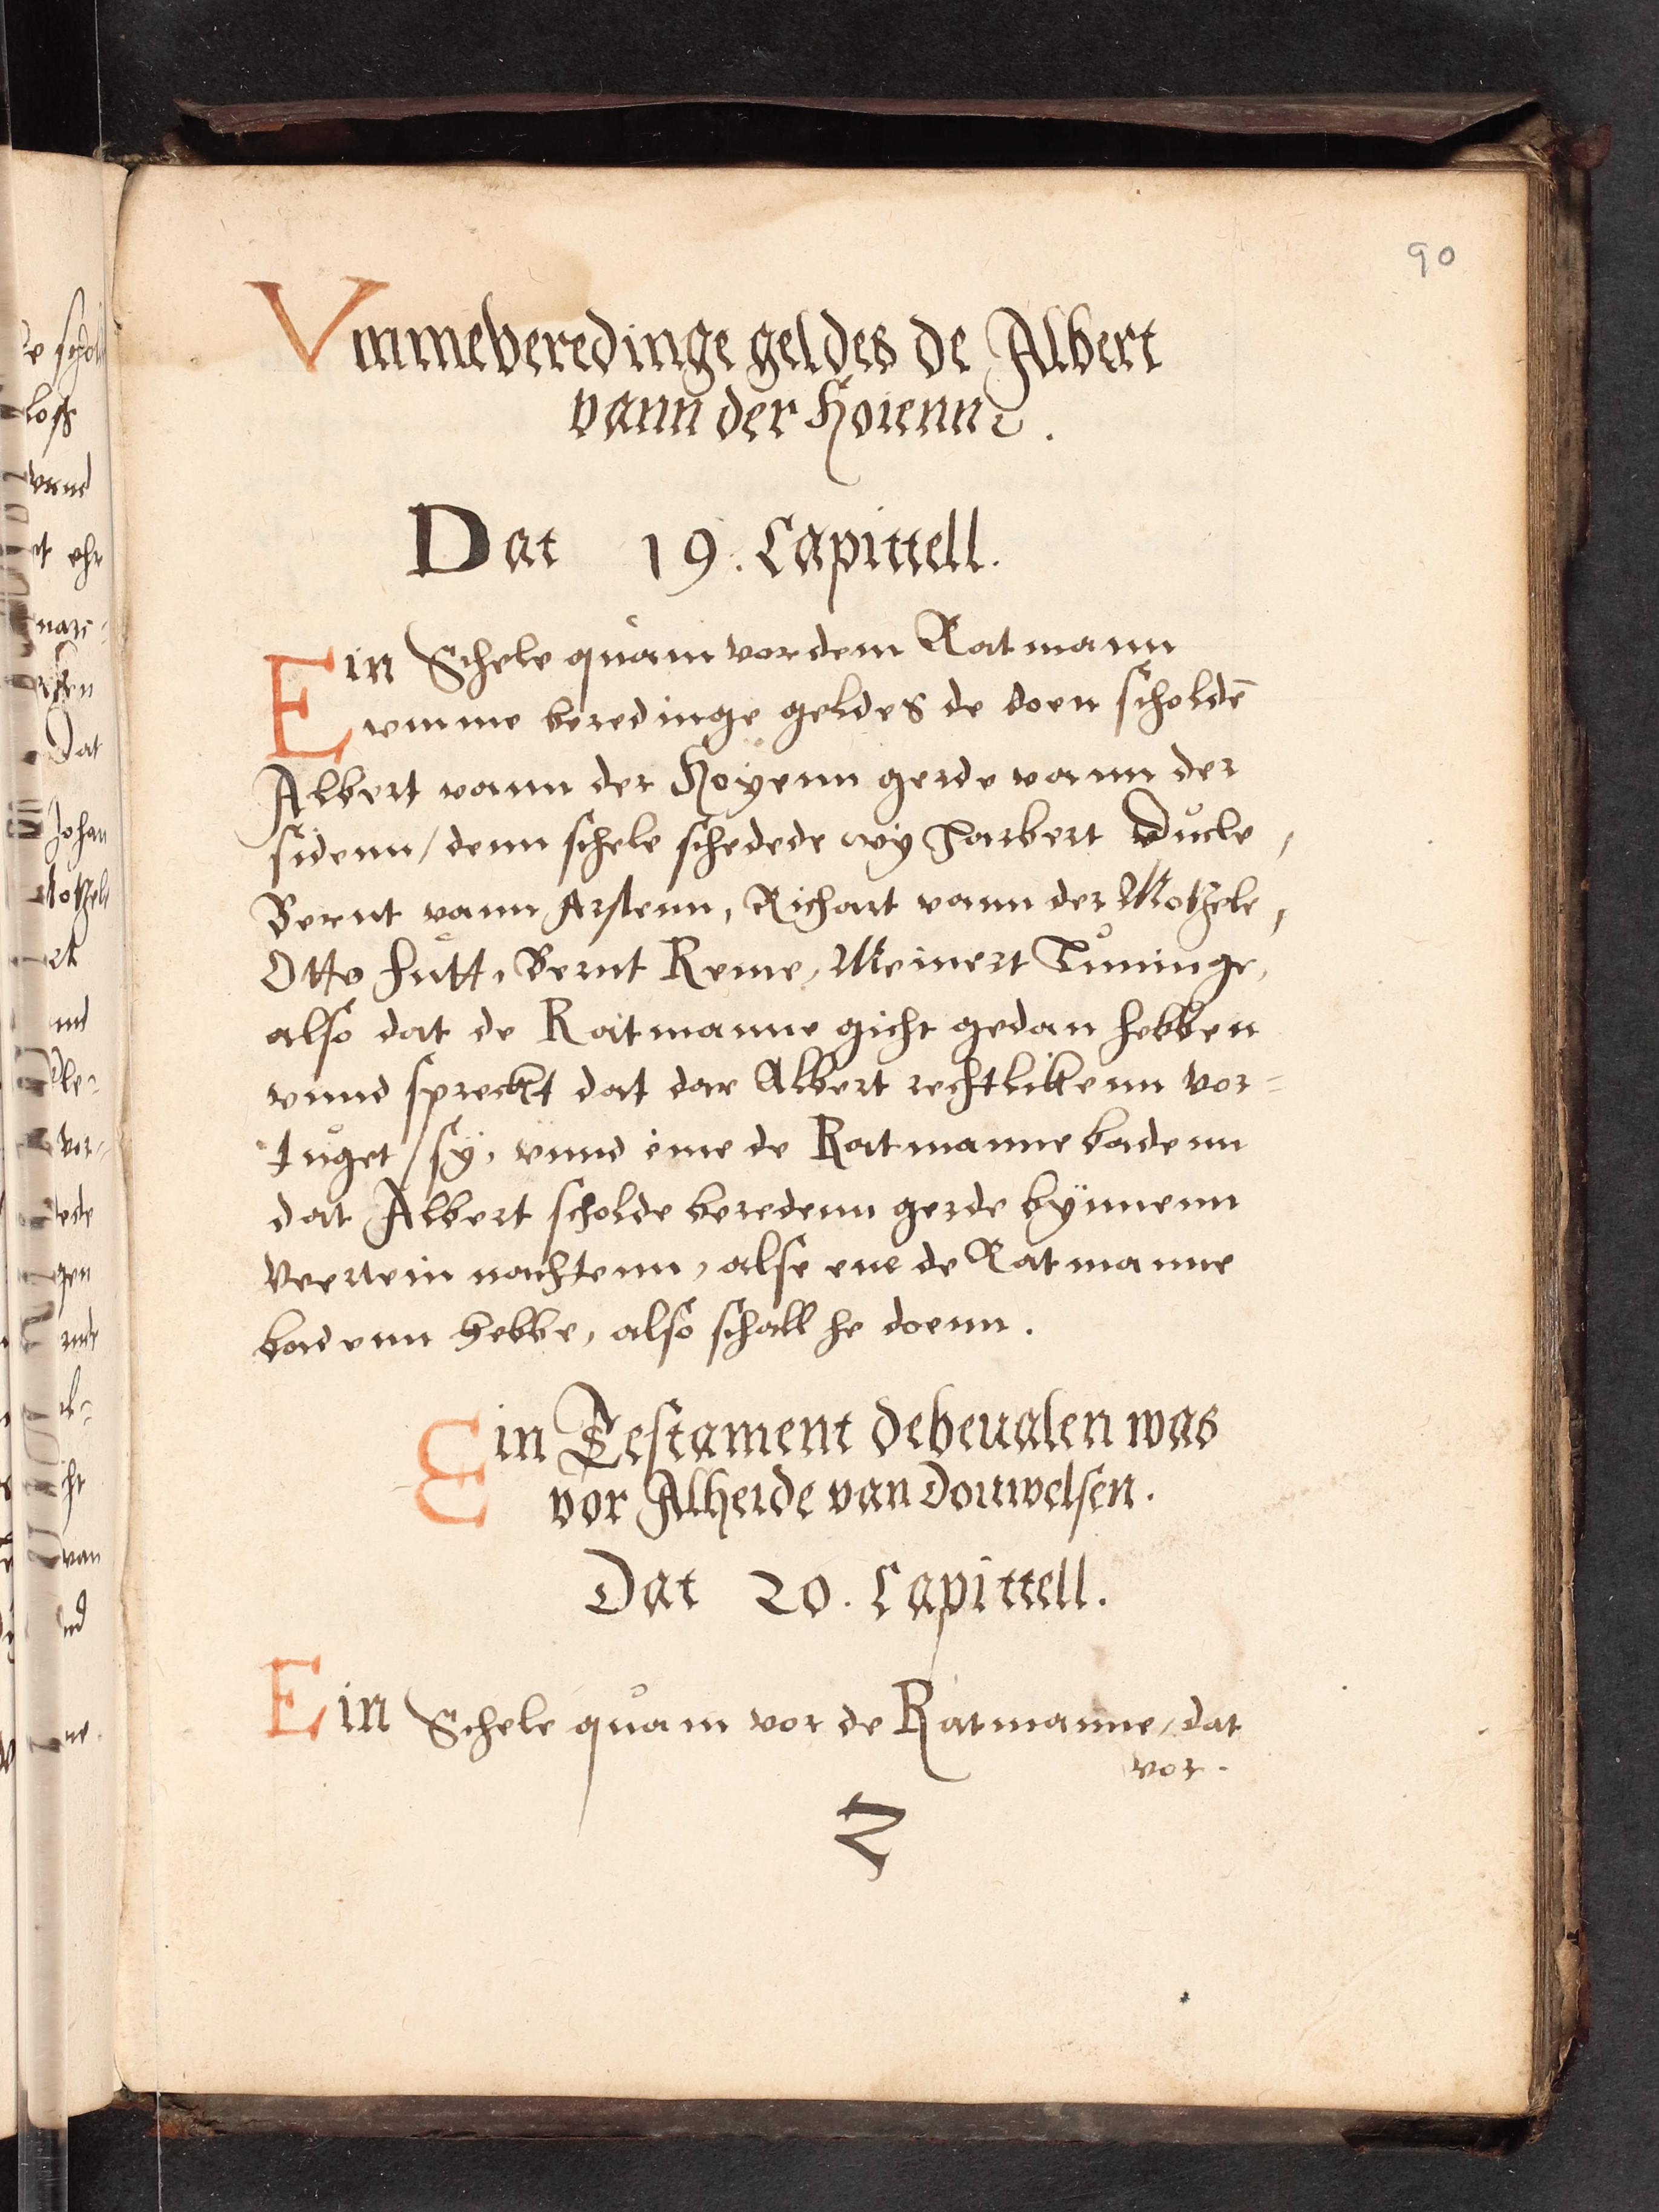 90
Vmmeberedinge geldes de Albert
vann der Hoienn.
Dat 19. Capittell.
Ein Schele quam vor dem Ratmann
vmme beredinge geldes de doen scholdē
Albert vann der Hoyenn gerde vann der
sidenn / denn schele schedede wy Harbert Ducle,
Bernt vann Arstenn, Richart vann der Motzele,
Otto Hutt, Bernt Reme, Meinert Tuninge,
also dat de Ratmanne gicht gedan hebben
vnnd spreckt dat dar Albert rechtlikenn vor=
tuget / sy, vnnd eme de Ratmanne badenn
dat Albert scholde beredenn gerde bynnenn
veertein nachtenn, alse ene de Ratmanne
badenn hebbe, also schall he doenn.
Ein Testament debeualen was
vor Alheide van Douwelsen.
Dat 20. Capittell.
Ein Schele quam vor de Ratmanne / dat
vor.
Z